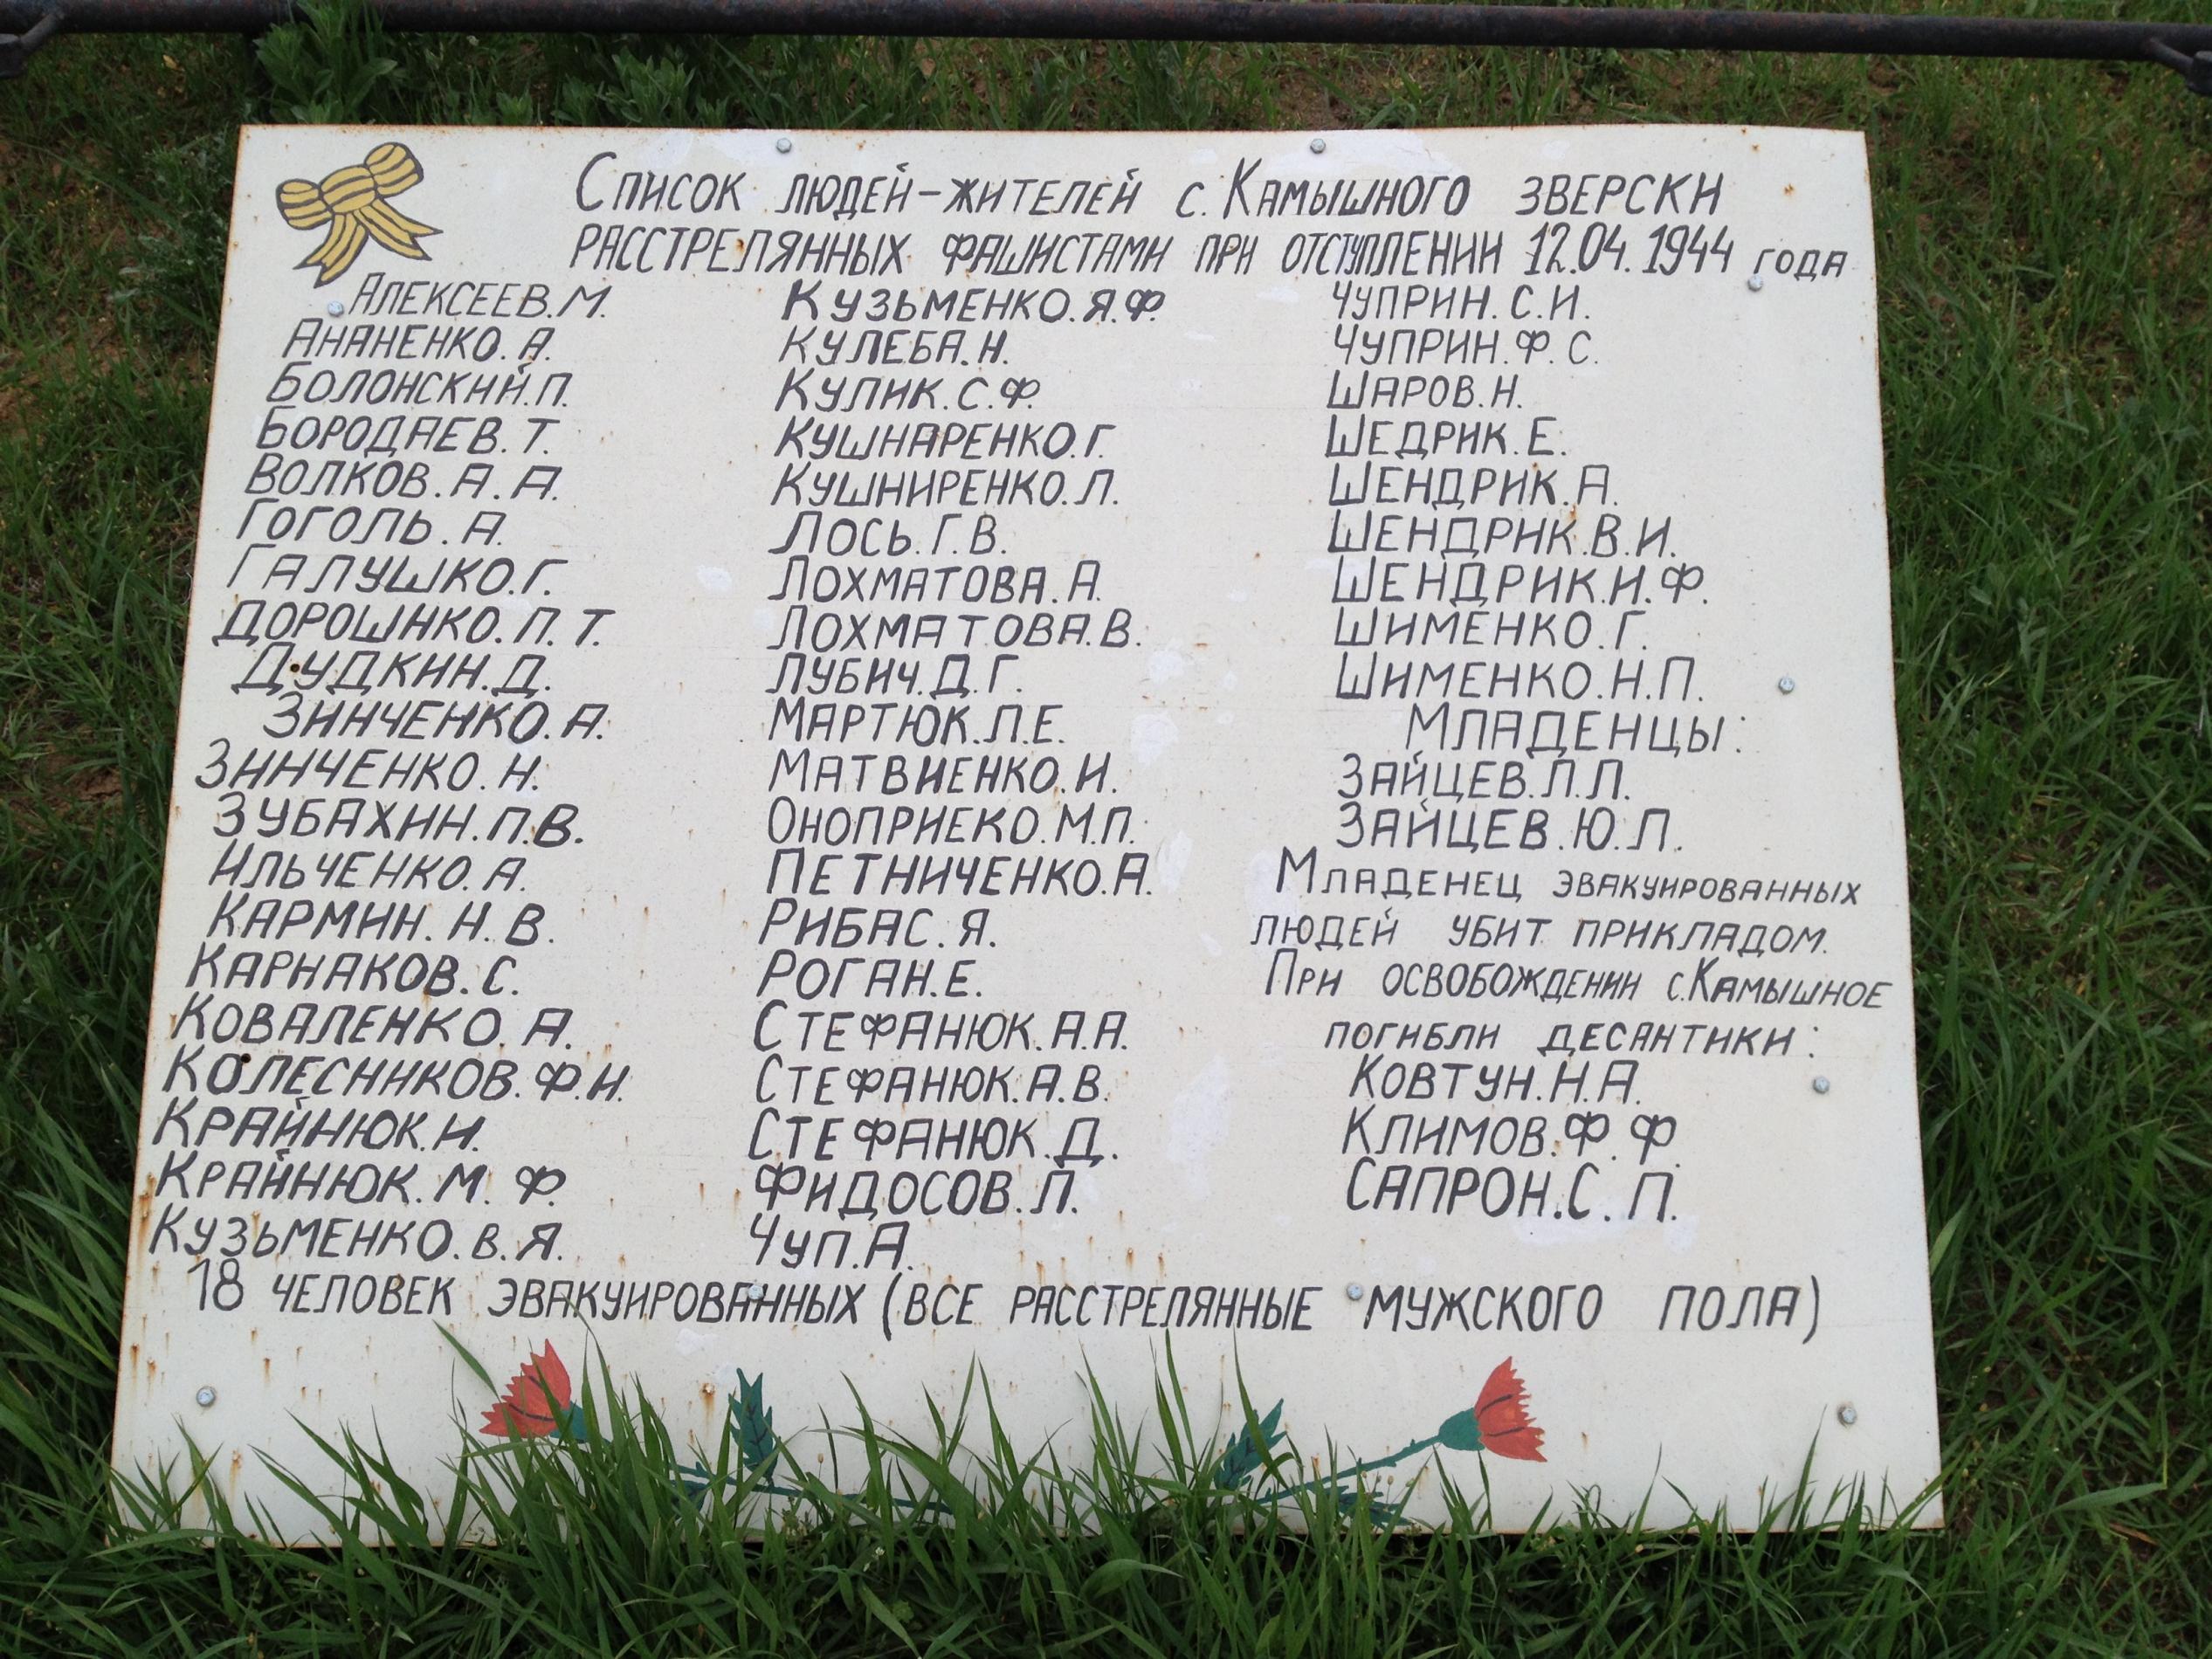 Список людей-жителей с. Камышного зверски
расстрелянных фашистами при отступлении 12.04.1944 года
Алексеев.М.
Ананенко.А.
Болонский.П.
Бородаев.Т.
Волков.А.А.
Гоголь.А.
Галушко.Г.
Дорошнко.П.Т.
Дудкин.Д.
Зинченко.А.
Зинченко.Н.
Зубахин.П.В.
Ильченко.А.
Кармин.Н.В.
Карнаков.С.
Коваленко.А.
Колесников.Ф.И.
Крайнюк.И.
Крайнюк.М.Ф.
Кузьменко.В.Я.
Кузьменко.Я.Ф.
Кулеба.Н.
Кулик.С.Ф.
Кушнаренко.Г.
Кушниренко.Л.
Лось.Г.В.
Лохматова.А.
Лохматова.В.
Лубич.Д.Г.
Мартюк.Л.Е.
Матвиенко.И.
Оноприеко.М.П.
Петниченко.А.
Рибас.Я.
Роган.Е.
Стефанюк.А.А.
Стефанюк.А.В.
Стефанюк.Д.
Фидосов.Л.
Чуп.А.
Чуприн.С.И.
Чуприн.Ф.С.
Шаров.Н.
Шедрик.Е.
Шендрик.А.
Шендрик.В.И.
Шендрик.И.Ф.
Шименко.Г.
Шименко.Н.П.
Младенцы:
Зайцев.Л.Л.
Зайцев.Ю.Л.
Младенец эвакуированных
людей убит прикладом.
При освобождении с.Камышное
погибли десантики:
Ковтун.Н.А.
Климов.Ф.Ф.
Сапрон.С.П.
18 человек эвакуированных (все расстрелянные мужского пола)